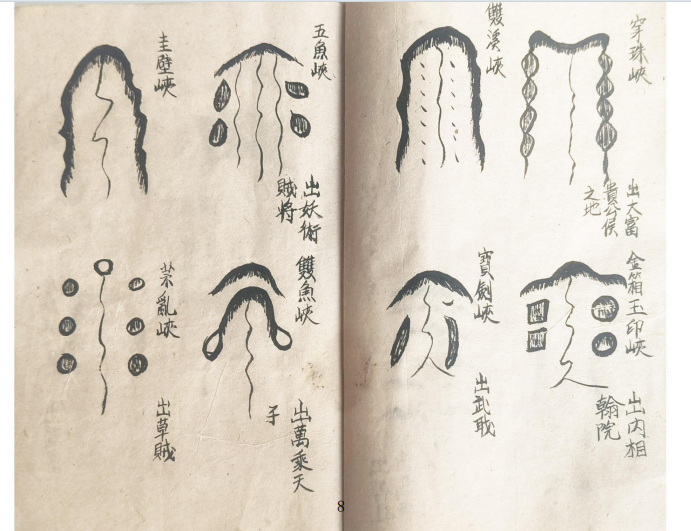 穿珠峽
出大富
貴公侯
之地
雙溪峽
金箱玉印峽
出内相
翰院
寶劍峽
出武
五魚峽
出妖術
賊將
圭壁峽
雙魚峽
出萬乘天
子
亂峽
出草賊
8